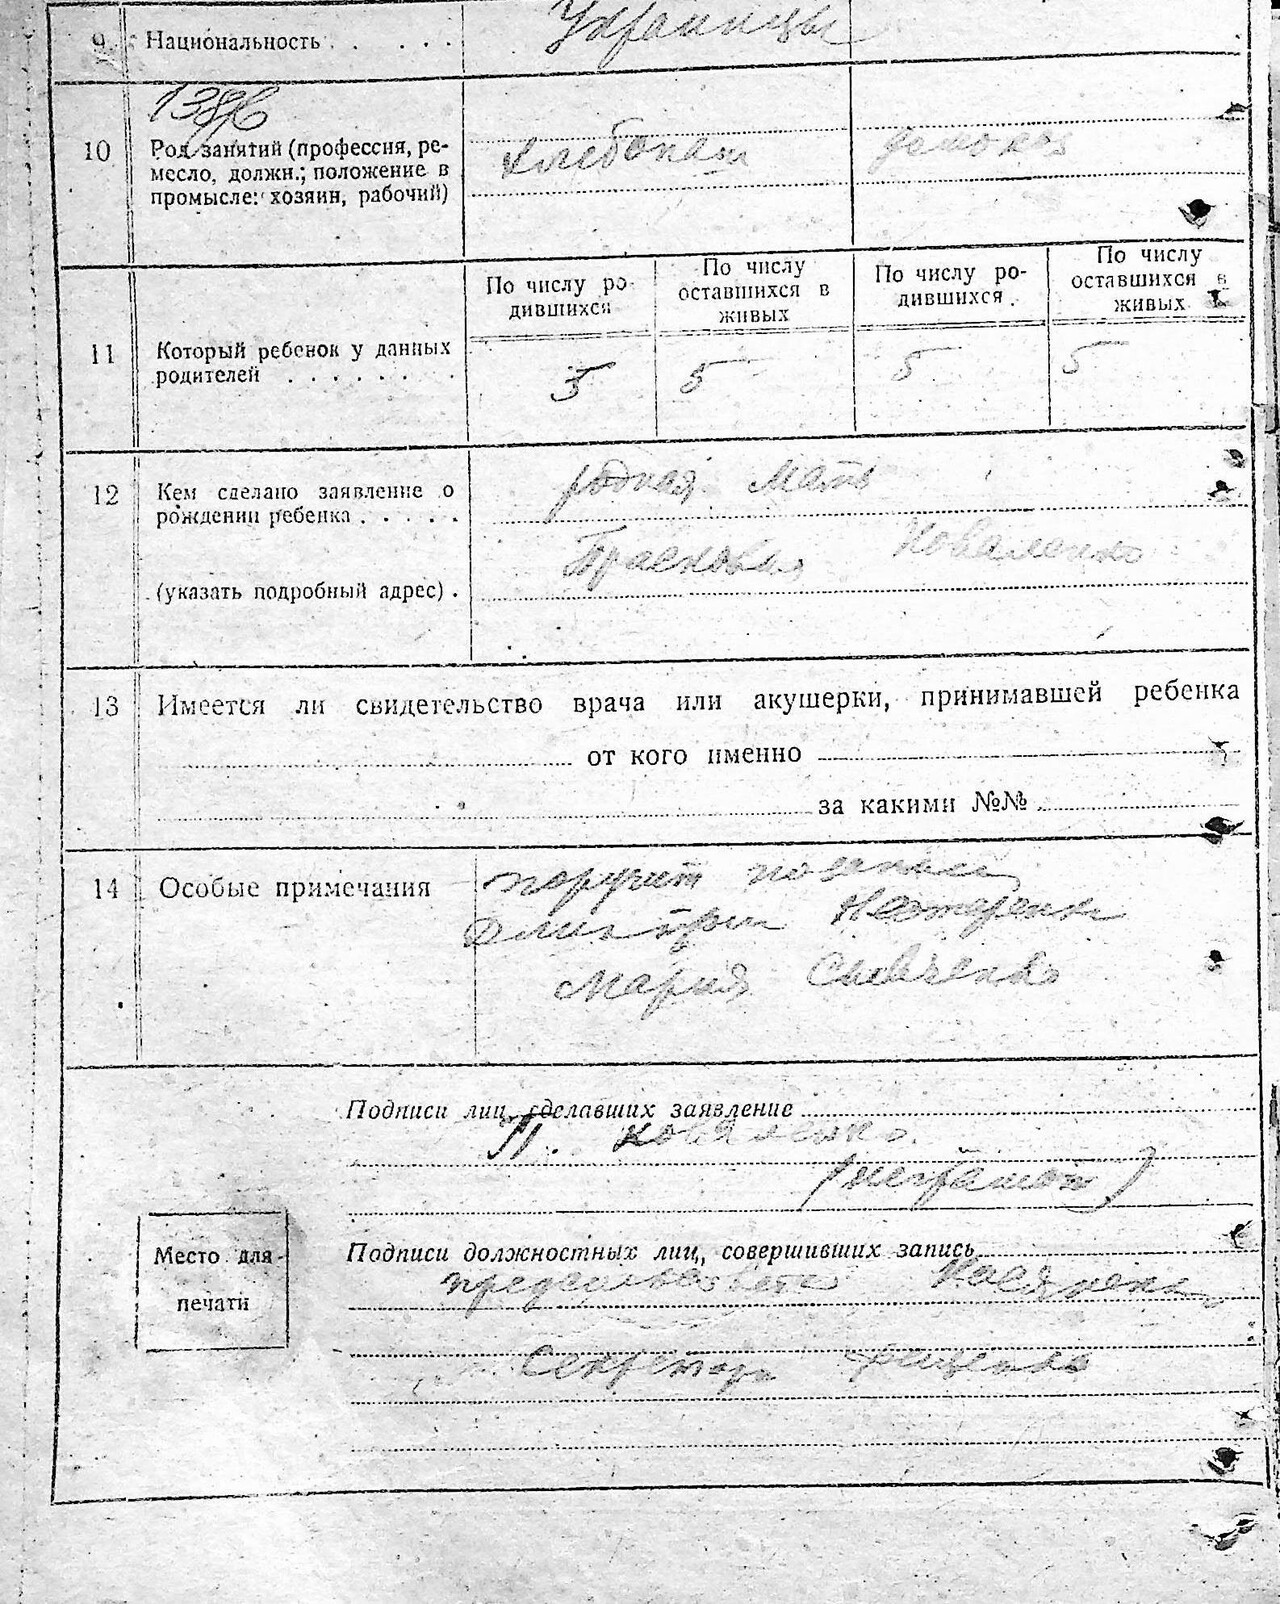 9 Национальность . . . . . Украинцы
10 Род занятий (профессия, ре-
месло, должн.; положение в
промысле: хозяин, рабочий)
хлебопаш
По числу ро-
дившихся
По числу
оставшихся в
живых
По числу ро-
дившихся .
По числу
оставшихся в
живых
11 Который ребенок у данных
родителей . . . . . . . .
5 5 5 5
12 Кем сделано заявление о
рождении ребенка . . . . .
родная мать
Коваленко
(указать подробный адрес) .
13 Имеется ли свидетельство врача или акушерки, принимавшей ребенка
от кого именно
за какими №№
14 Особые примечания
Мария
Подписи лиц, сделавших заявление
П. Коваленко
(неграмот)
Место для
печати
Подписи должностных лиц, совершивших запись
Секретарь